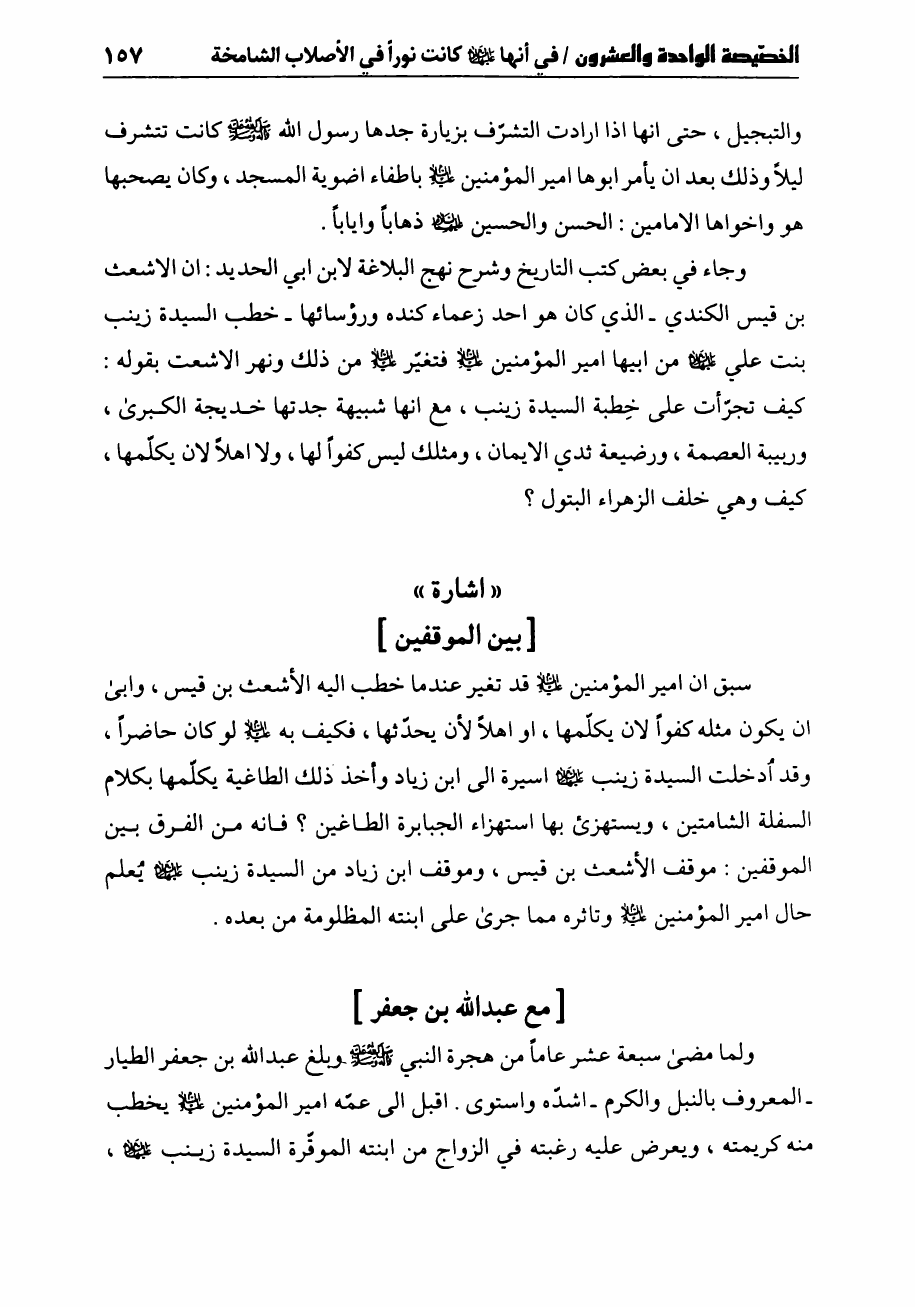 الخصّيصة الواحدة والعشرون / في أنها عليها السلام كانت نوراً في الأصلاب الشامخة ١٥٧
والتبجيل ، حتى انها اذا ارادت التشرّف بزيارة جدها رسول الله صلى الله عليه وآله وسلم كانت تتشرف
ليلاً وذلك بعد ان يأمر ابوها امير المؤمنين عليه السلام باطفاء اضوية المسجد ، وكان يصحبها
هو واخواها الامامين : الحسن والحسين عليهما السلام ذهاباً واياباً .
وجاء في بعض كتب التاريخ وشرح نهج البلاغة لابن ابي الحديد : ان الاشعث
بن قيس الكندي ـ الذي كان هو احد زعماء كنده ورؤسائها ـ خطب السيدة زينب
بنت علي عليهما السلام من ابيها امير المؤمنين عليه السلام فتغيّر عليه السلام من ذلك ونهر الاشعت بقوله :
كيف تجرّأت على خِطبة السيدة زينب ، مع انها شبيهة جدتها خديجة الكبرىٰ ،
وربيبة العصمة ، ورضيعة ثدي الايمان ، ومثلك ليس كفواً لها ، ولا اهلاً لان يكلّمها ،
كيف وهي خلف الزهراء البتول ؟
« اشارة »
[ بين الموقفين ]
سبق ان امير المؤمنين عليه السلام قد تغير عندما خطب اليه الأشعث بن قيس ، وابىٰ
ان يكون مثله كفواً لان يكلّمها ، او اهلاً لأن يحدّثها ، فكيف به عليه السلام لو كان حاضراً ،
وقد أُدخلت السيدة زينب عليها السلام اسيرة الى ابن زياد وأخذ ذلك الطاغية يكلّمها بكلام
السفلة الشامتين ، ويستهزئ بها استهزاء الجبابرة الطاغين ؟ فانه من الفرق بين
الموقفين : موقف الأشعث بن قيس ، وموقف ابن زياد من السيدة زينب عليها السلام يُعلم
حال امير المؤمنين عليه السلام وتاثره مما جرىٰ على ابنته المظلومة من بعده .
[ مع عبدالله بن جعفر ]
ولما مضىٰ سبعة عشر عاماً من هجرة النبي صلى الله عليه وآله وسلم وبلغ عبدالله بن جعفر الطيار
ـ المعروف بالنبل والكرم ـ اشدّه واستوى . اقبل الى عمّه امير المؤمنين عليه السلام يخطب
منه كريمته ، ويعرض عليه رغبته في الزواج من ابنته الموقّرة السيدة زينب عليها السلام ،